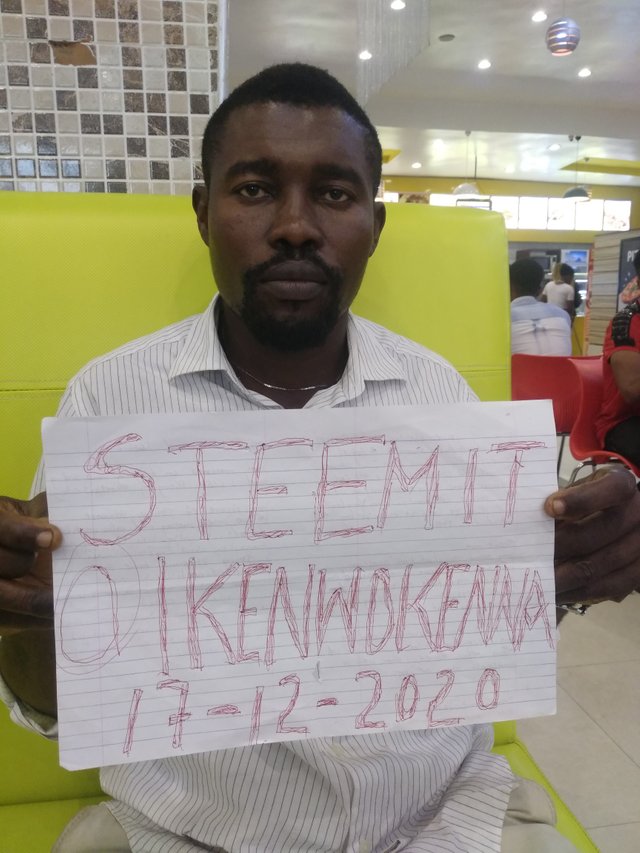 STEEMIT
@IKENWOKENWA
17-12-2020